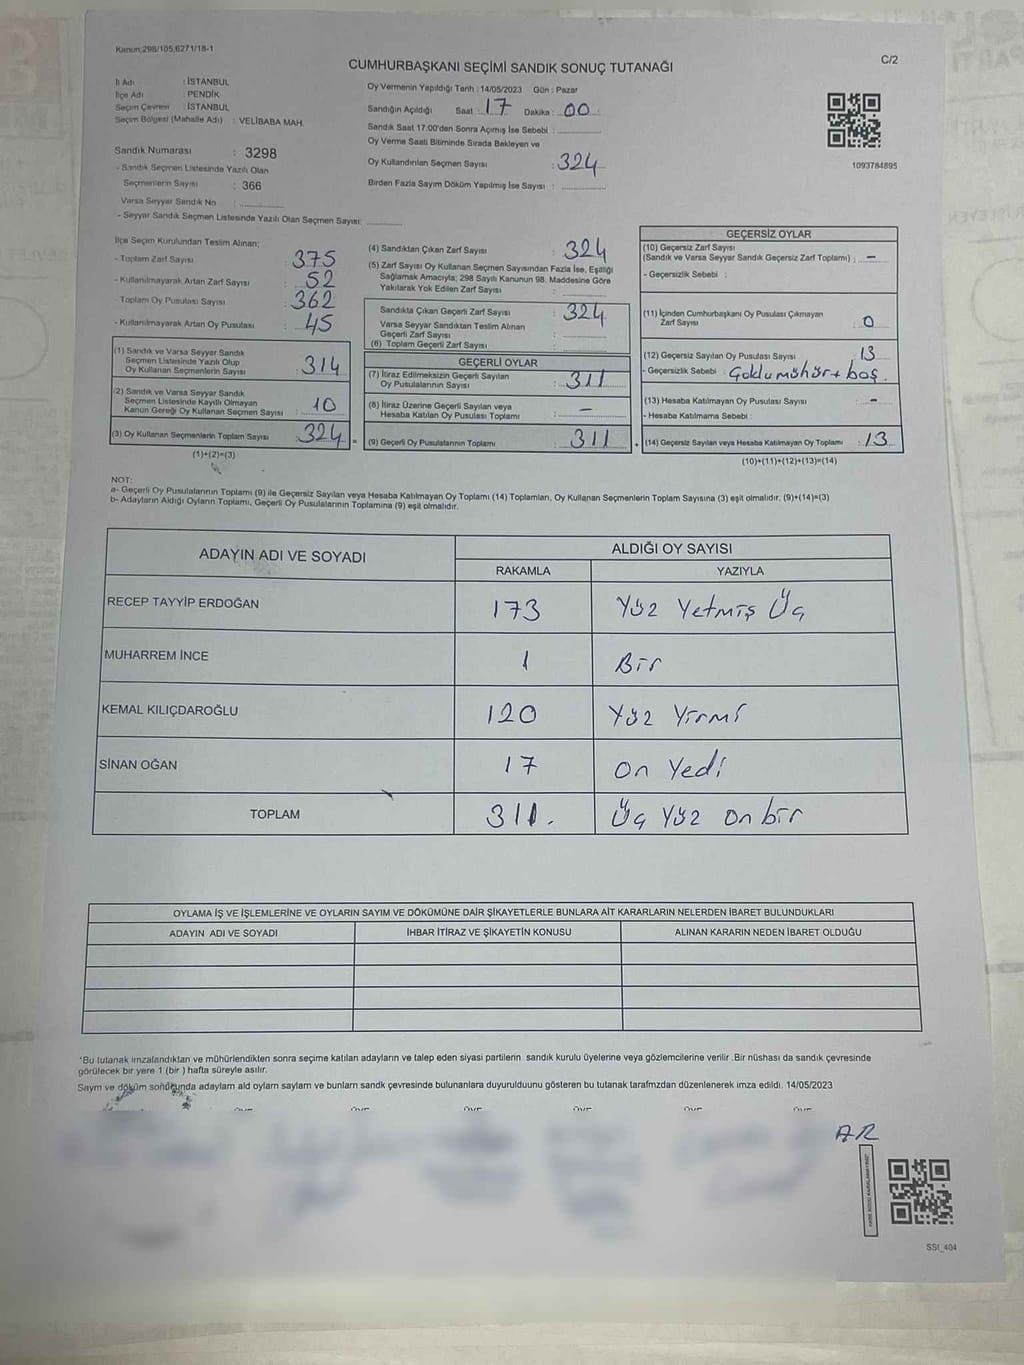 Kanun;298/105,6271/18-1
C/2
CUMHURBAŞKANI SEÇİMİ SANDIK SONUÇ TUTANAĞI
İl Adı : İSTANBUL
İlçe Adı : PENDİK
Seçim Çevresi : İSTANBUL
Seçim Bölgesi (Mahalle Adı) : VELİBABA MAH.
Sandık Numarası : 3298
- Sandık Seçmen Listesinde Yazılı Olan
Seçmenlerin Sayısı : 366
Varsa Seyyar Sandık No :
- Seyyar Sandık Seçmen Listesinde Yazılı Olan Seçmen Sayısı:
Oy Vermenin Yapıldığı Tarih : 14/05/2023 Gün : Pazar
Sandığın Açıldığı Saat : 17 Dakika : 00
Sandık Saat 17:00'dan Sonra Açımış İse Sebebi :
Oy Verme Saati Bitiminde Sırada Bekleyen ve
Oy Kullandırılan Seçmen Sayısı : 324
Birden Fazla Sayım Döküm Yapılmış İse Sayısı :
1093784895
İlçe Seçim Kurulundan Teslim Alınan;
- Toplam Zarf Sayısı : 375
- Kullanılmayarak Artan Zarf Sayısı : 52
- Toplam Oy Pusulası Sayısı : 362
- Kullanılmayarak Artan Oy Pusulası : 45
(1) Sandık ve Varsa Seyyar Sandık
Seçmen Listesinde Yazılı Olup
Oy Kullanan Seçmenlerin Sayısı : 314
(2) Sandık ve Varsa Seyyar Sandık
Seçmen Listesinde Kayıtlı Olmayan
Kanun Gereği Oy Kullanan Seçmen Sayısı : 10
(3) Oy Kullanan Seçmenlerin Toplam Sayısı : 324 =
(1)+(2)=(3)
(4) Sandıktan Çıkan Zarf Sayısı : 324
(5) Zarf Sayısı Oy Kullanan Seçmen Sayısından Fazla İse, Eşitliği
Sağlamak Amacıyla; 298 Sayılı Kanunun 98. Maddesine Göre
Yakılarak Yok Edilen Zarf Sayısı :
Sandıkta Çıkan Geçerli Zarf Sayısı : 324
Varsa Seyyar Sandıktan Teslim Alınan
Geçerli Zarf Sayısı :
(6) Toplam Geçerli Zarf Sayısı :
GEÇERLİ OYLAR
(7) İtiraz Edilmeksizin Geçerli Sayılan
Oy Pusulalarının Sayısı : 311
(8) İtiraz Üzerine Geçerli Sayılan veya
Hesaba Katılan Oy Pusulası Toplamı : -
(9) Geçerli Oy Pusulalarının Toplamı : 311 +
GEÇERSİZ OYLAR
(10) Geçersiz Zarf Sayısı
(Sandık ve Varsa Seyyar Sandık Geçersiz Zarf Toplamı) : -
- Geçersizlik Sebebi :
(11) İçinden Cumhurbaşkanı Oy Pusulası Çıkmayan
Zarf Sayısı : 0
(12) Geçersiz Sayılan Oy Pusulası Sayısı : 13
- Geçersizlik Sebebi : Çoklu mühür + boş.
(13) Hesaba Katılmayan Oy Pusulası Sayısı : -
- Hesaba Katılmama Sebebi :
(14) Geçersiz Sayılan veya Hesaba Katılmayan Oy Toplamı : 13
(10)+(11)+(12)+(13)=(14)
NOT:
a- Geçerli Oy Pusulalarının Toplamı (9) ile Geçersiz Sayılan veya Hesaba Katılmayan Oy Toplamı (14) Toplamları, Oy Kullanan Seçmenlerin Toplam Sayısına (3) eşit olmalıdır. (9)+(14)=(3)
b- Adayların Aldığı Oyların Toplamı, Geçerli Oy Pusulalarının Toplamına (9) eşit olmalıdır.
ADAYIN ADI VE SOYADI
ALDIĞI OY SAYISI
RAKAMLA YAZIYLA
RECEP TAYYİP ERDOĞAN 173 Yüz Yetmiş Üç
MUHARREM İNCE 1 Bir
KEMAL KILIÇDAROĞLU 120 Yüz Yirmi
SİNAN OĞAN 17 on Yedi
TOPLAM 311. Üç Yüz on bir
OYLAMA İŞ VE İŞLEMLERİNE VE OYLARIN SAYIM VE DÖKÜMÜNE DAİR ŞİKAYETLERLE BUNLARA AİT KARARLARIN NELERDEN İBARET BULUNDUKLARI
ADAYIN ADI VE SOYADI İHBAR İTİRAZ VE ŞİKAYETİN KONUSU ALINAN KARARIN NEDEN İBARET OLDUĞU
*Bu tutanak imzalandıktan ve mühürlendikten sonra seçime katılan adayların ve talep eden siyasi partilerin sandık kurulu üyelerine veya gözlemcilerine verilir .Bir nüshası da sandık çevresinde
görülecek bir yere 1 (bir ) hafta süreyle asılır.
Sayım ve döküm sonucunda adaylarn ald oylarn saylarn ve bunlarn sandk çevresinde bulunanlara duyurulduunu gösteren bu tutanak tarafmzdan düzenlenerek imza edildi. 14/05/2023
AR
SSI_404